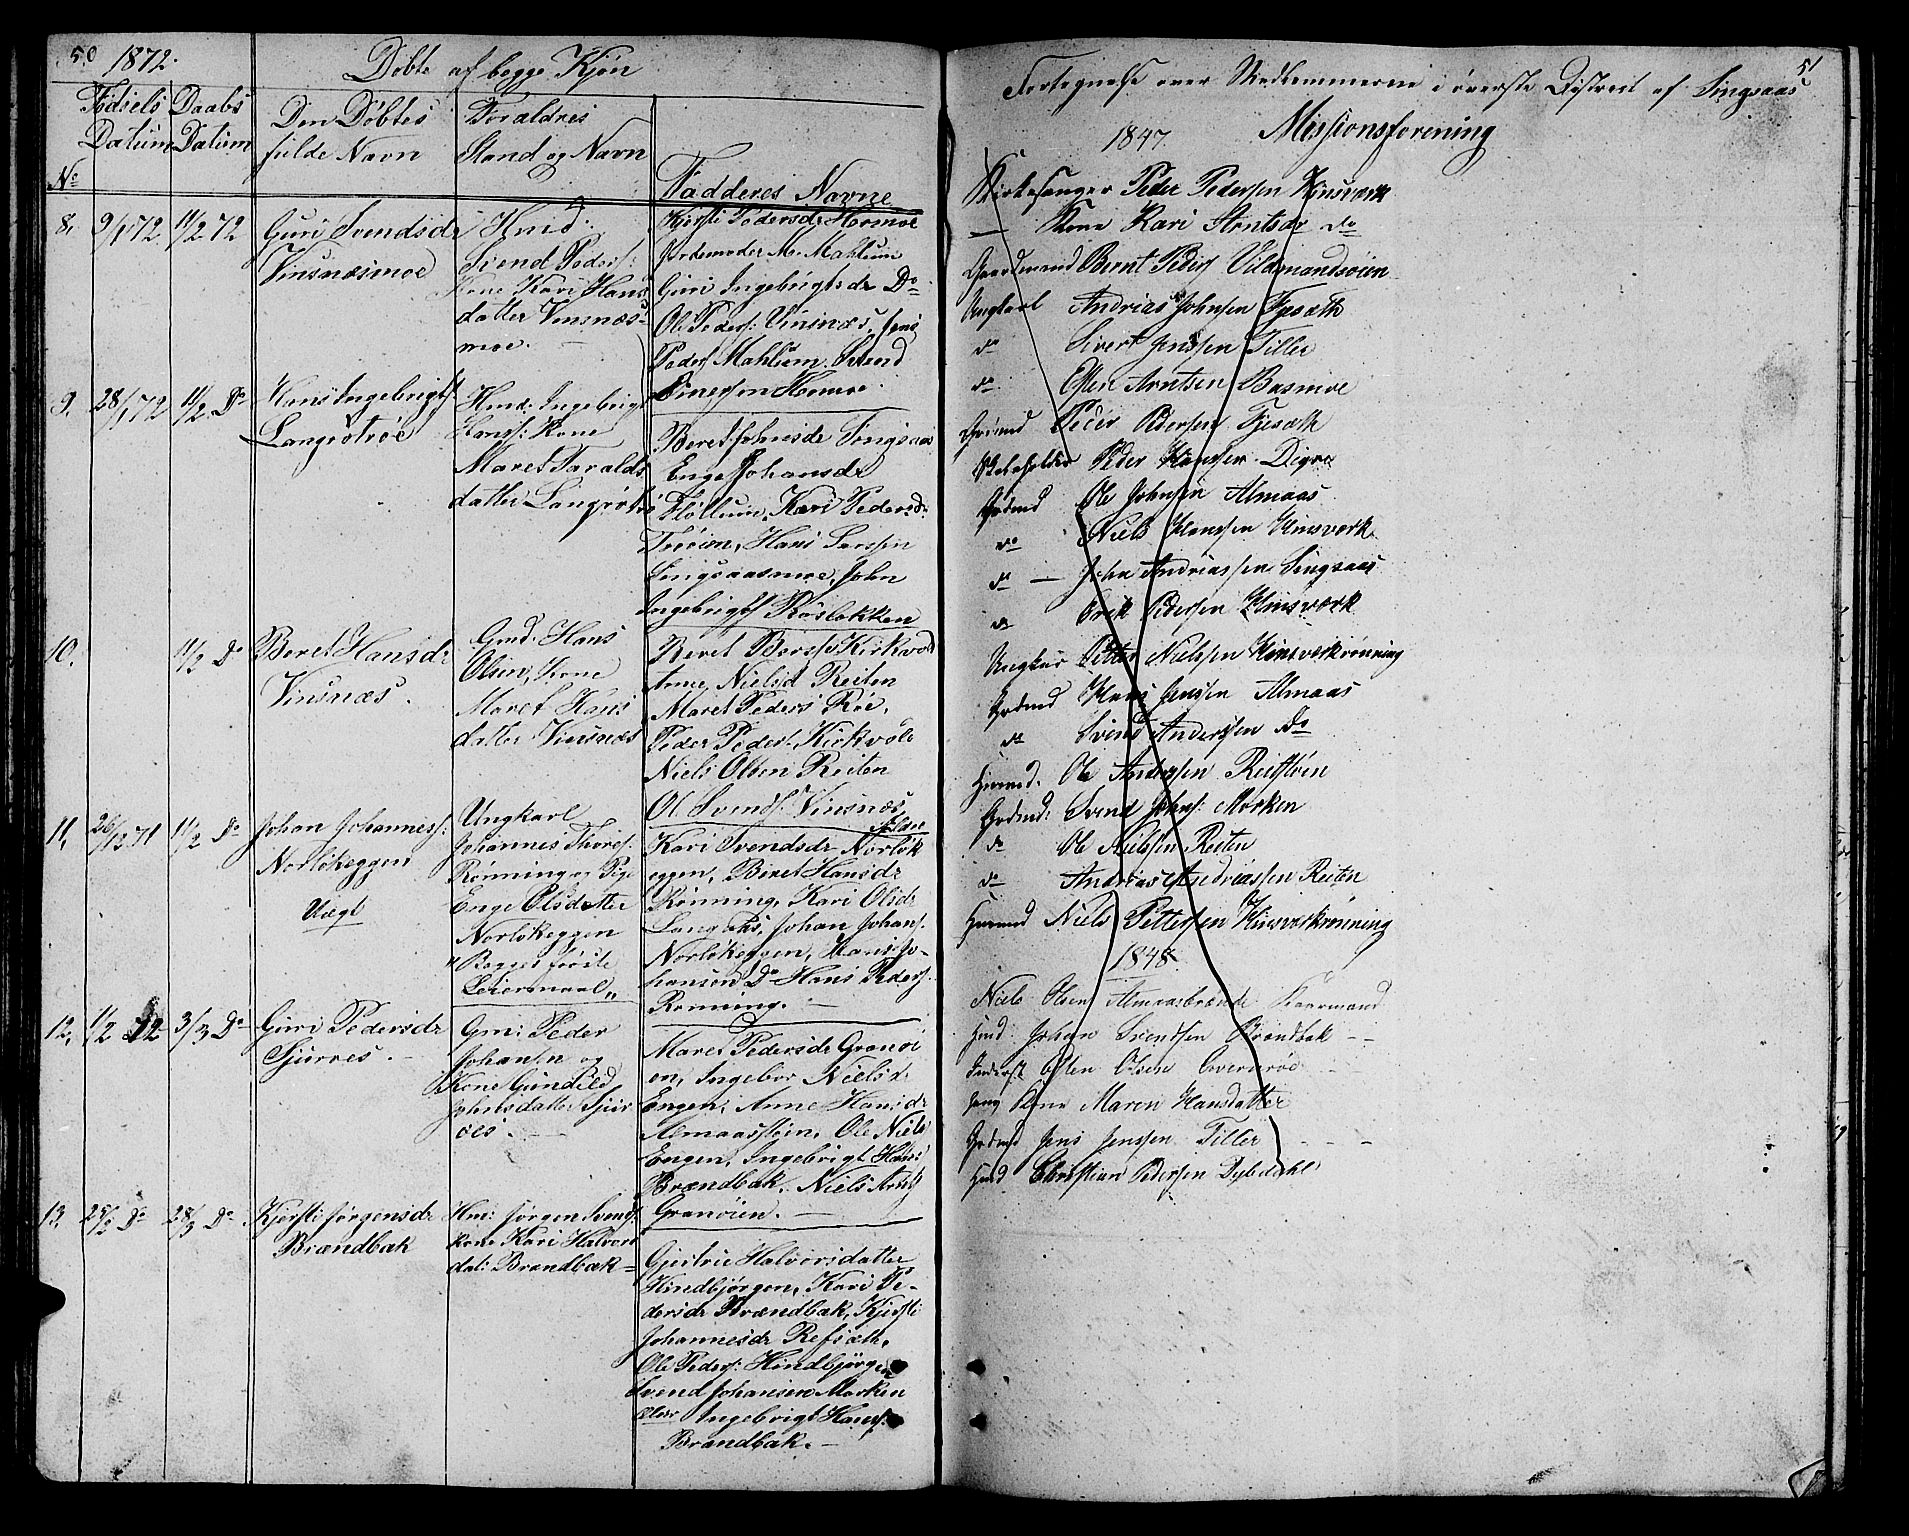 50 1872.
Døbte af begge Kjøn
Fødsels Daabs Den Døbtes Forældres
Datum Datum fulde Navn Stand og Navn
No Fadderes Navne
8, 9/1 72. 11/2 72 Guri Svendsdr
Vinsnæsmoe
Hmd:
Svend Peders:
Kone Kari Hans
datter Vinsnæs-
moe.
Kjersti Pedersdr Hormoe
Jordemoder M. Mahlum
Guri Ingebrigtsdr Do
Ole Peders: Vinsnæs, Jens
Peders Mahlum. Svend
Simessen Hormoe.
9. 28/1 72 11/2 Do Hans Ingebrigts
Langrøtrøe
Hmd: Ingebrigt
Hans: Kone
Maret Taralds
datter Langrøtrø
Beret Johnsdr Singsaas
Enge Johansdr
Fløttum, Kari Pedersdr
Trøien, Hans Larssen
Singsaasmoe, John
Ingebrigts Røsløkken
10. 11/2 Do Beret Hansdr
Vinsnæs.
Gmd: Hans
Olsen, Kone
Maret Hans
datter Vinsnæs
Beret Bersv Kirkvold
Anne Nielsd Reiten
Maret Peders Røe,
Peder Peders: Kirkvold
Niels Olsen Reiten
Ol Svends: Vinsnæs
11, 26/12 71 11/2 Do Johan Johanness:
Norløkeggen
Uægt
Ungkarl
Johannes Thores:
Rønning og Pige
Enge Olsdatter
Norløkeggen
"Begges første
Leiermaal"
Kari Svendsdr Norløk
eggen, Beret Hansdr
Rønning, Kari Olsdr
Johan Johans:
Norløkeggen, Hans Jo-
hansen Do Hans Peders:
Rønning.
12, 11/2 72 3/3 Do Guri Pedersdr
Sjurræs.
Gm: Peder
Johansn og
Kone Gunild
Johnsdatter Sjur
ræs.
Maret Pedersdr Granøi
en, Ingebor Nielsdr
Engen, Anne Hansdr
Almaasstøen, Ole Niels
Engen, Ingebrigt Hans:
Brændbak, Niels Arnts
Granøien.
13, 25/2 Do 28/3 Do Kjersti Jørgensdr
Brændbak
Hm: Jørgen Svends:
Kone Kari Halvors
dat: Brændbæk
Gjertrue Halvorsdatter
Hindbjørgen, Kari Pe-
dersdr Brændbak, Kjersti
Johannesdr Refsæth,
Ole Peders: Hindbjørgen
Svend Johansen Morken
Ingebrigt Hans:
Brændbak.
51
Fortegnelse over Medlemmerne i øverste District af Singsaas
1847. Missionsforening
Kirkesanger Peder Pedersen Hinsværk
— Kone Kari Arntsdr do
Gaardmand Bernt Peders Vildmandsøien
Ungkarl Andrias Johnsen Fjesæth
do Sivert Jenssen Tiller
do Esten Arntsen Busmoe
Grdmd Peder Pedersen Fjesæth
Skoleholder Peder Hanssen Digre
Grdmd Ole Johnsen Almaas
do Niels Hanssen Hinsværk
do — John Andriassen Singsaas
do Erik Pedersen Hinsværk
Ungkar Petter Nielssen Hinsværkrønning
Grdmd Hans Jenssen Almaas
do Svend Anderssen do
Husmd. Ole Anderssen Reitstøen
Grdmd: Svend Johns: Morken
do Ole Nielsen Reiten
do Andrias Andriassen Reiten
Husmd Niels Pettersen Hinsværkrønning
1848.
Niels Olsen Almaasbrænde
Hmd: Johan Svendsen Brændbak --
Esten Olsen
Kone Maren Hansdatter
Grdmd Jens Jenssen Tiller - - -
Hmd Christian Pedersen Dybdahl